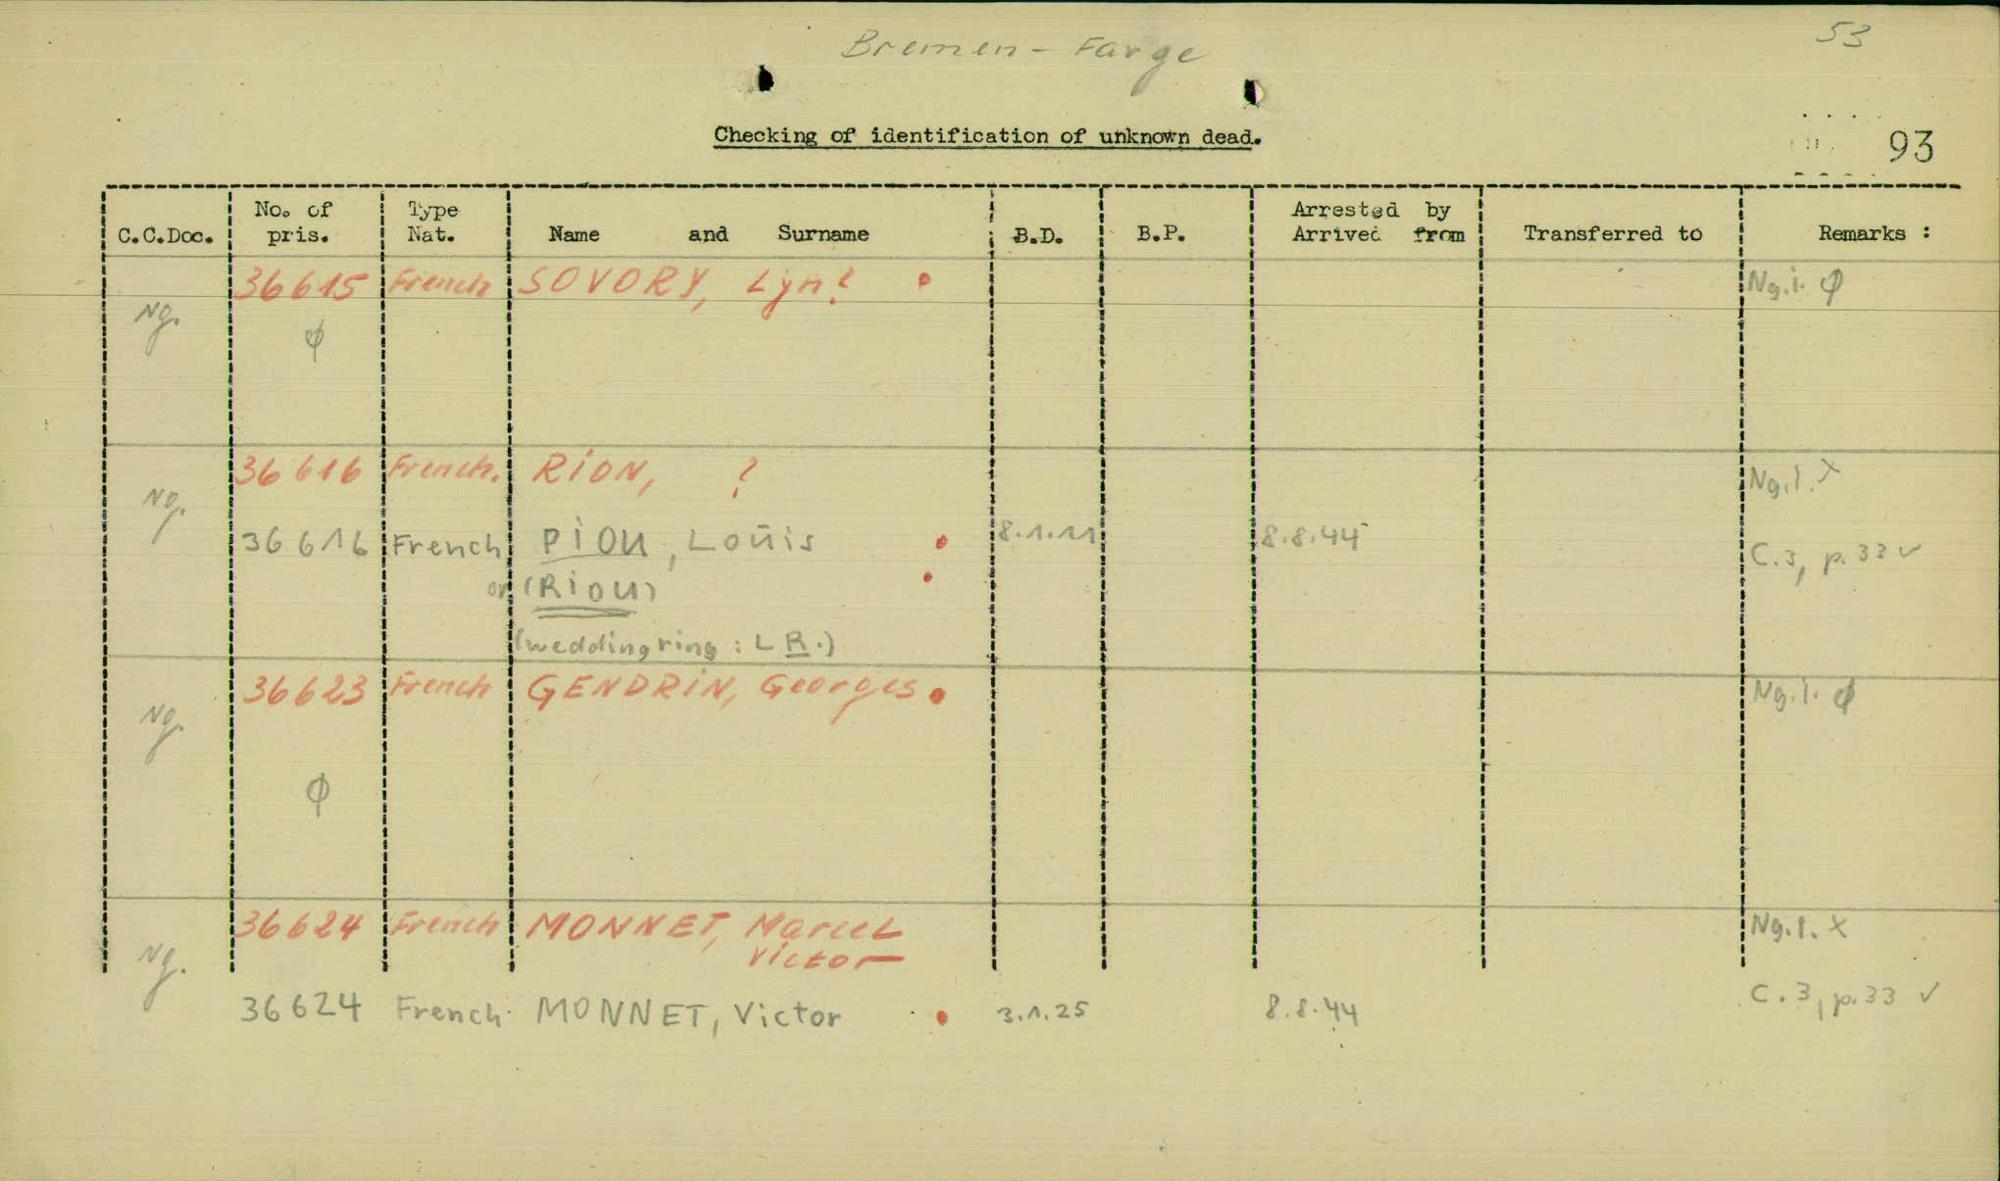 Bremen - Farge
53
Checking of identification of unknown dead.
93
C.C.Doc. No. of pris. Type Nat. Name and Surname B.D. B.P. Arrested by Arrived from Transferred to Remarks :
36615 French SOVORY, Lyn? Ng.i. ϕ
Ng. ϕ
36616 French. RION, ? Ng.i. x
Ng.
36616 French PIOU, Louis 8.1.11 8.8.44 C.3, p.33 ✓
or (RIOU)
(weddingring : L R.)
36623 French GENDRIN, Georges Ng.i. ϕ
Ng.
ϕ
36624 French MONNET, Marcel Ng.i. x
Victor
Ng.
36624 French MONNET, Victor 3.1.25 8.8.44 C.3, p.33 ✓